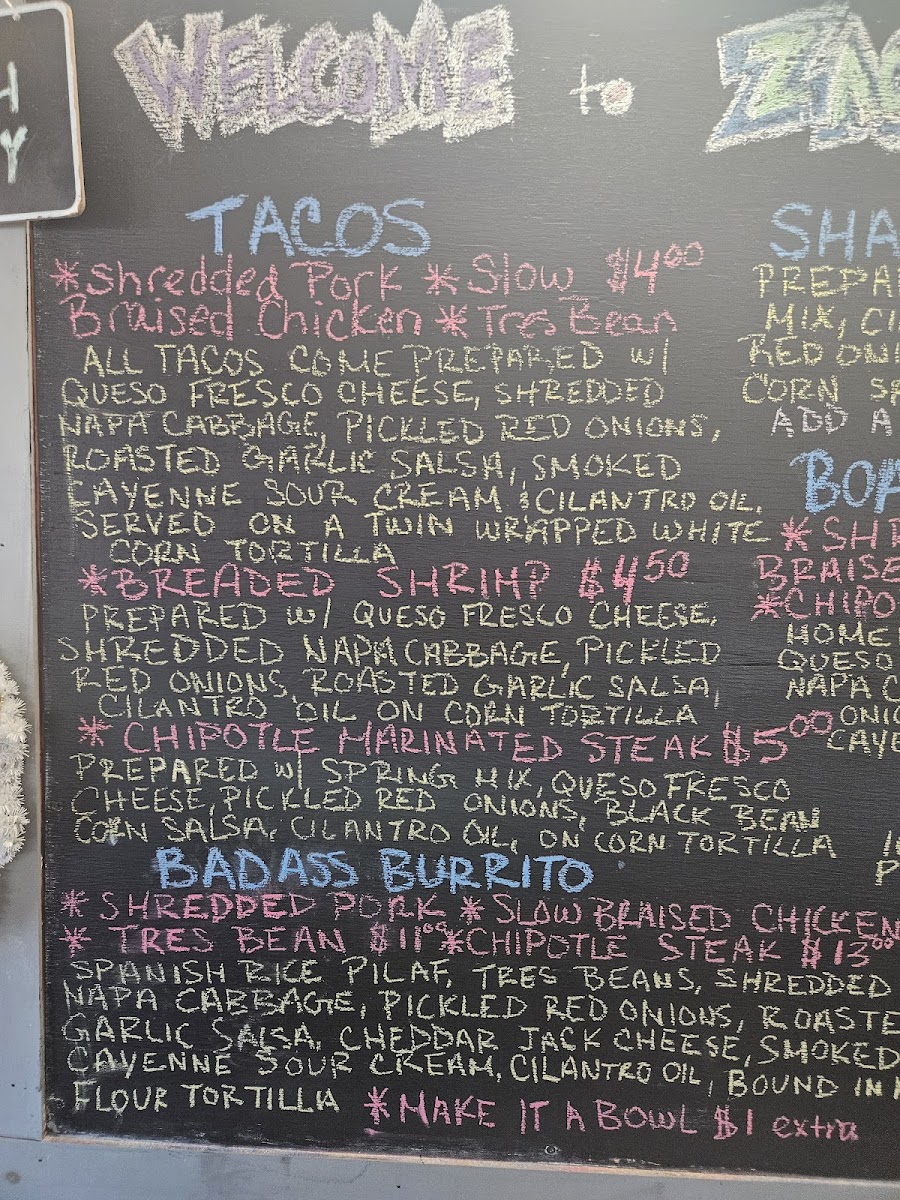 H
Y
WELCOME to
TACOS
*Shredded Pork *Slow $4.00
Braised Chicken *Tres Bean
ALL TACOS COME PREPARED W/
QUESO FRESCO CHEESE, SHREDDED
NAPA CABBAGE, PICKLED RED ONIONS,
ROASTED GARLIC SALSA, SMOKED
CAYENNE SOUR CREAM & CILANTRO OIL.
SERVED ON A TWIN WRAPPED WHITE
CORN TORTILLA
*BREADED SHRIMP $4.50
PREPARED W/ QUESO FRESCO CHEESE,
SHREDDED NAPA CABBAGE, PICKLED
RED ONIONS, ROASTED GARLIC SALSA,
CILANTRO OIL ON CORN TORTILLA
*CHIPOTLE MARINATED STEAK $5.00
PREPARED W/ SPRING MIX, QUESO FRESCO
CHEESE, PICKLED RED ONIONS, BLACK BEAN
CORN SALSA, CILANTRO OIL, ON CORN TORTILLA
BADASS BURRITO
*SHREDDED PORK *SLOW BRAISED CHICKEN
*TRES BEAN $11.00 *CHIPOTLE STEAK $13.00
SPANISH RICE PILAF, TRES BEANS, SHREDDED
NAPA CABBAGE, PICKLED RED ONIONS, ROASTE
GARLIC SALSA, CHEDDAR JACK CHEESE, SMOKED
CAYENNE SOUR CREAM, CILANTRO OIL, BOUND IN A
FLOUR TORTILLA *MAKE IT A BOWL $1 extra
SHA
PREPA
MIX, CI
RED ONI
CORN SA
ADD A
BOA
*SHR
BRAISE
*CHIPO
HOME
QUESO
NAPA C
ONIO
CAYE